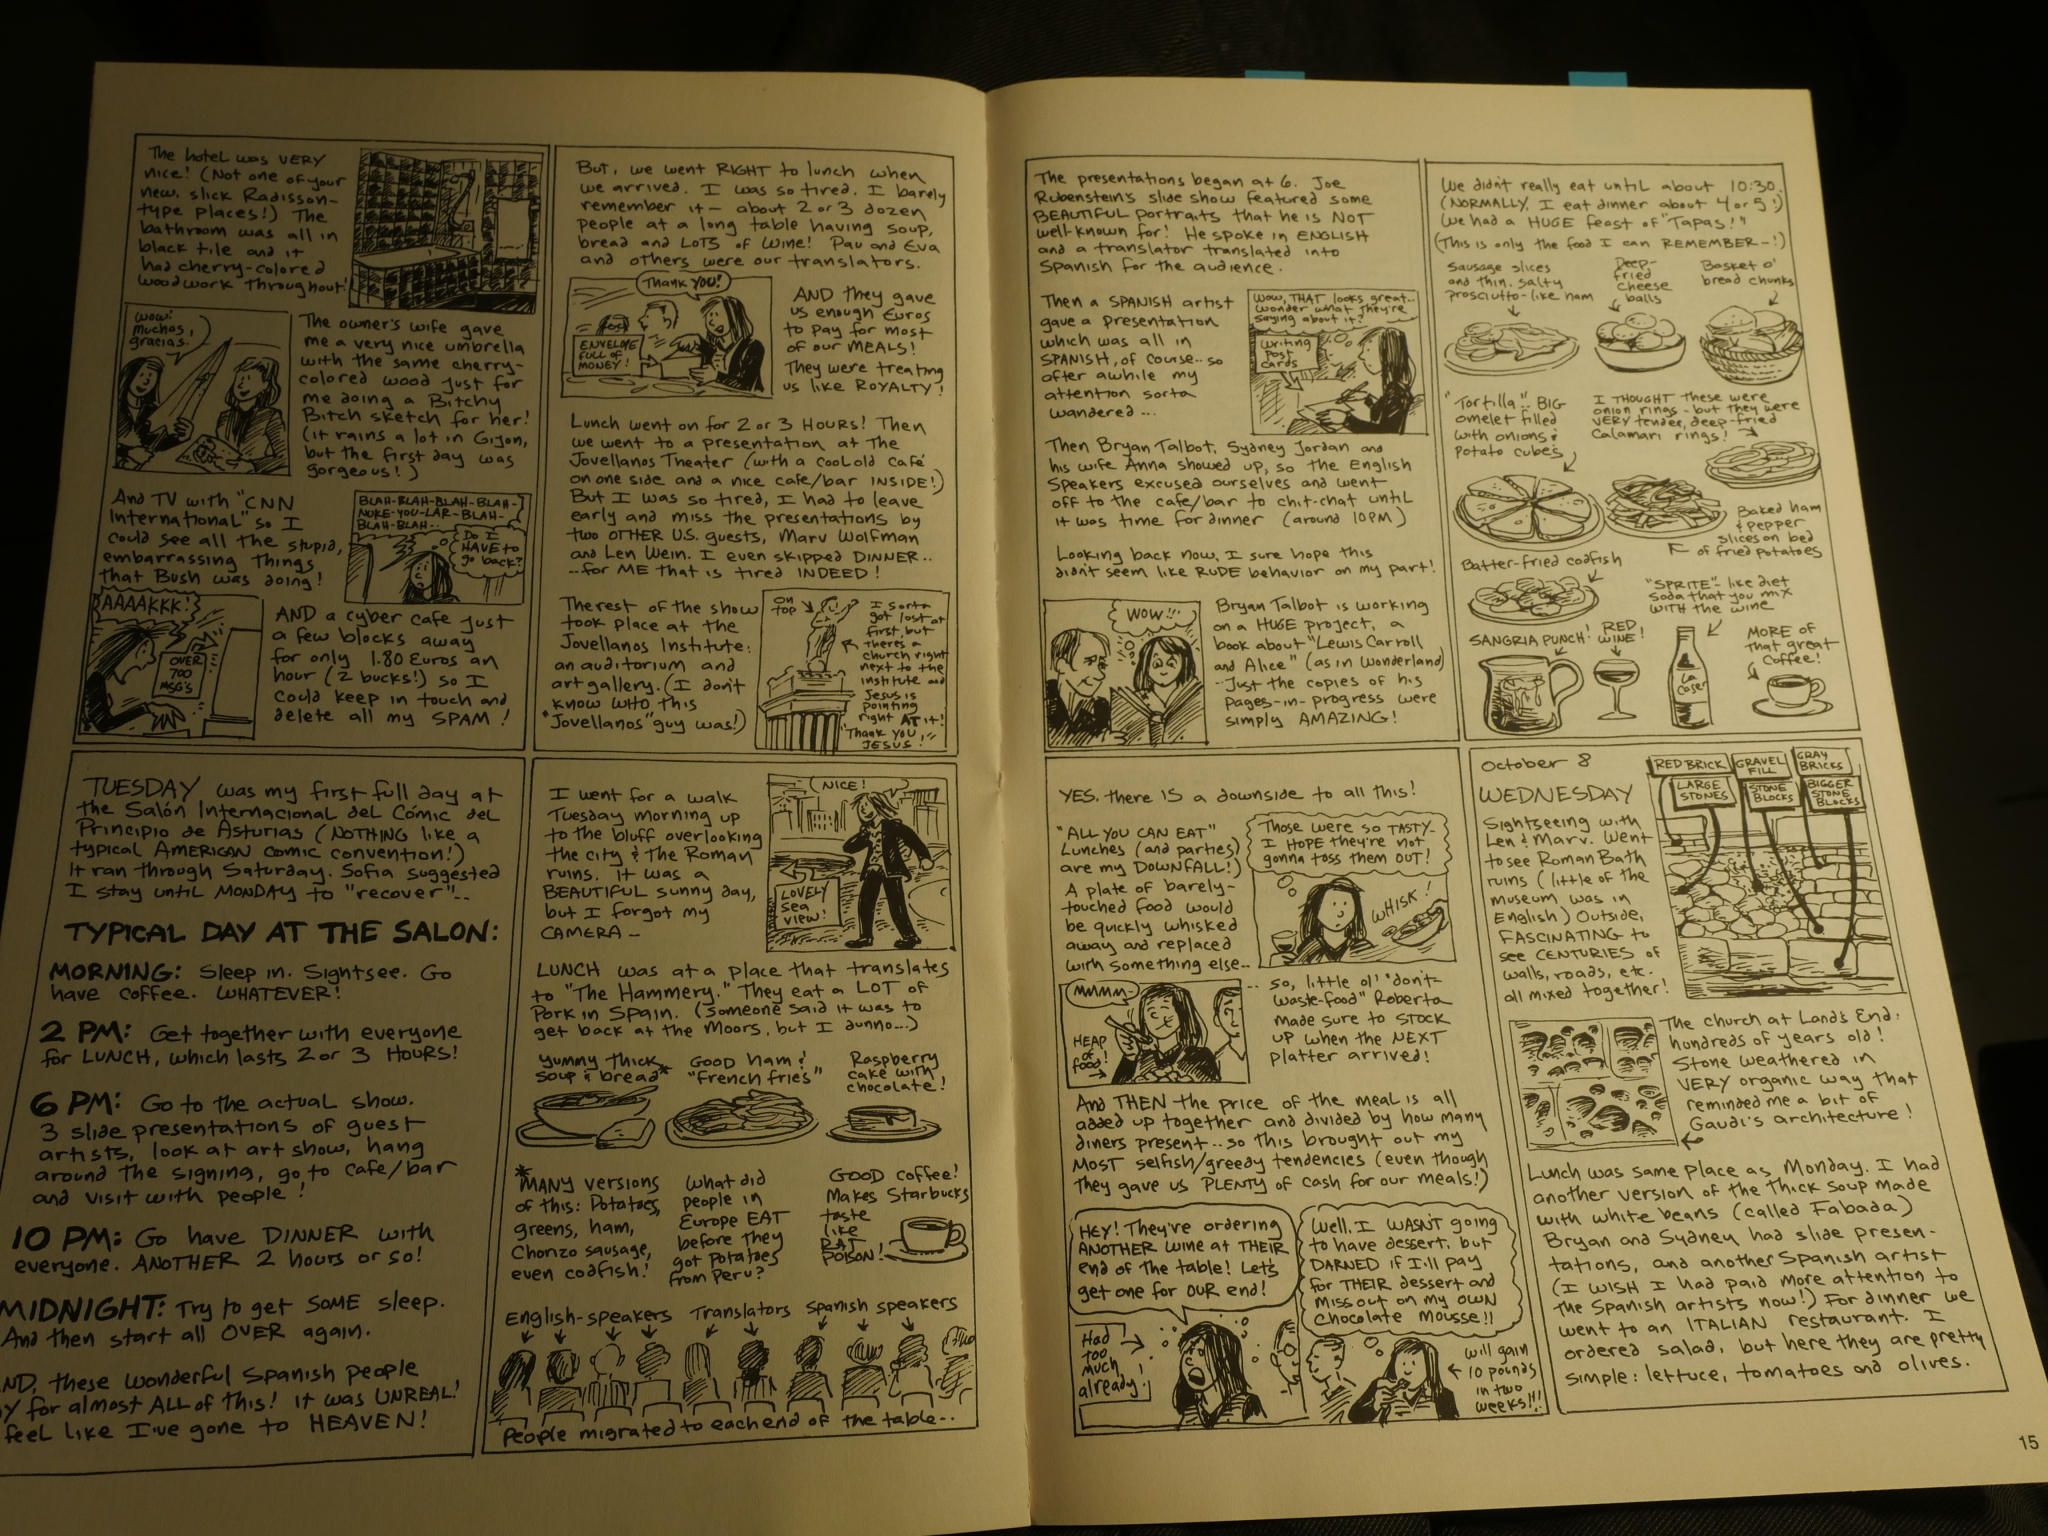 The hotel was VERY
nice! (Not one of your
new, slick Radisson-
type places!) The
bathroom was all in
black tile and it
had cherry-colored
woodwork throughout!
WOW!
muchas
gracias.
The owner's wife gave
me a very nice umbrella
with the same cherry-
colored wood just for
me doing a Bitchy
Bitch sketch for her!
(it rains a lot in Gijon,
but the first day was
gorgeous!)
And TV with "CNN
International" so I
could see all the stupid,
embarrassing things
that Bush was doing!
BLAH-BLAH-BLAH-BLAH-
NUKE-YOU-LAR-BLAH-
BLAH-BLAH..
Do I
HAVE to
go back?
AAAAKKK!
OVER
700
MSG'S
AND a cyber cafe just
a few blocks away
for only 1.80 Euros an
hour (2 bucks!) so I
could keep in touch and
delete all my SPAM!
But, we went RIGHT to lunch when
we arrived. I was so tired. I barely
remember it— about 2 or 3 dozen
people at a long table having soup,
bread and LOTS of wine! Pau and Eva
and others were our translators.
Thank you!
ENVELOPE
FULL OF
MONEY!
AND they gave
us enough Euros
to pay for most
of our MEALS!
They were treating
us like ROYALTY!
Lunch went on for 2 or 3 HOURS! Then
we went to a presentation at the
Jovellanos Theater (with a cool old café
on one side and a nice cafe/bar INSIDE!)
But I was so tired, I had to leave
early and miss the presentations by
two OTHER U.S. guests, Marv Wolfman
and Len Wein. I even skipped DINNER..
...for ME that is tired INDEED!
The rest of the show
took place at the
Jovellanos Institute:
an auditorium and
art gallery. (I don't
know WHO this
"Jovellanos" guy was!)
ON
TOP
I sorta
got lost at
first, but
there's a
church right
next to the
institute and
Jesus is
pointing
right AT it!
"Thank you
JESUS!"
TUESDAY was my first full day at
the Salón Internacional del Cómic del
Principio de Asturias (NOTHING like a
typical AMERICAN comic convention!)
It ran through Saturday. Sofia suggested
I stay until MONDAY to "recover"..
TYPICAL DAY AT THE SALON:
MORNING: Sleep in. Sightsee. Go
have coffee. WHATEVER!
2 PM: Get together with everyone
for LUNCH, which lasts 2 or 3 HOURS!
6 PM: Go to the actual show.
3 slide presentations of guest
artists, look at art show, hang
around the signing, go to cafe/bar
and visit with people!
10 PM: Go have DINNER with
everyone. ANOTHER 2 hours or so!
MIDNIGHT: Try to get SOME sleep.
And then start all OVER again.
AND, these wonderful Spanish people
for almost ALL of this! it was UNREAL!
feel like I've gone to HEAVEN!
I went for a walk
Tuesday morning up
to the bluff overlooking
the city & the Roman
ruins. It was a
BEAUTIFUL sunny day,
but I forgot my
CAMERA—
NICE!
LOVELY
sea
view!
LUNCH was at a place that translates
to "The Hammery." They eat a LOT of
Pork in Spain. (Someone said it was to
get back at the Moors, but I dunno...)
yummy thick
soup & bread*
GOOD ham &
"french fries"
Raspberry
cake with
chocolate!
*MANY versions
of this: Potatoes,
greens, ham,
Chorizo sausage,
even codfish!
What did
people in
Europe EAT
before they
got potatoes
from Peru?
GOOD coffee!
Makes Starbucks
taste
like
RAT
POISON!
English-speakers
Translators
Spanish speakers
People migrated to each end of the table..
The presentations began at 6. Joe
Rubenstein's slide show featured some
BEAUTIFUL portraits that he is NOT
well-known for! He spoke in ENGLISH
and a translator translated into
Spanish for the audience.
Then a SPANISH artist
gave a presentation
which was all in
SPANISH, of course.. so
after awhile my
attention sorta
wandered...
Wow, THAT looks great..
wonder what they're
saying about it?
Writing
Post
cards
Then Bryan Talbot, Sydney Jordan and
his wife Anna showed up, so the English
speakers excused ourselves and went
off to the cafe/bar to chit-chat until
it was time for dinner (around 10PM)
Looking back now, I sure hope this
didn't seem like RUDE behavior on my part!
WOW!!!
Bryan Talbot is working
on a HUGE project, a
book about "Lewis Carroll
and Alice" (as in Wonderland)
..Just the copies of his
pages-in-progress were
simply AMAZING!
We didn't really eat until about 10:30.
(NORMALLY, I eat dinner about 4 or 5!)
We had a HUGE feast of "Tapas!"
(This is only the food I can REMEMBER—!)
Sausage slices
and thin, salty
prosciutto-like ham
Deep-
fried
cheese
balls
Basket o'
bread chunks
"Tortilla": BIG
omelet filled
with onions &
potato cubes
I THOUGHT these were
onion rings - but they were
VERY tender, deep-fried
Calamari rings!
Baked ham
& pepper
slices on bed
of fried potatoes
Batter-fried codfish
"SPRITE"- like diet
soda that you mix
WITH the wine
SANGRIA PUNCH!
RED
WINE!
La
Caser
MORE of
that great
coffee!
YES, there IS a downside to all this!
"ALL YOU CAN EAT"
Lunches (and parties)
are my DOWNFALL!
A plate of barely-
touched food would
be quickly whisked
away and replaced
with something else..
Those were so TASTY—
I HOPE they're not
gonna toss them OUT!
WHISK!
MMMM—
HEAP
of
food!
.. so, little ol' "don't-
waste-food" Roberta
made sure to STOCK
UP when the NEXT
platter arrived!
And THEN the price of the meal is all
added up together and divided by how many
diners present... so this brought out my
MOST selfish/greedy tendencies (even though
they gave us PLENTY of cash for our meals!)
HEY! They're ordering
ANOTHER wine at THEIR
end of the table! Let's
get one for OUR end!
Had
too
much
already!
Well, I WASN'T going
to have dessert, but
DARNED if I'll pay
for THEIR dessert and
miss out on my OWN
chocolate mousse!!
will gain
10 pounds
in two
weeks!!!
October 8
WEDNESDAY
Sightseeing with
Len & Marv. Went
to see Roman Bath
ruins (little of the
museum was in
English) Outside,
FASCINATING to
see CENTURIES of
walls, roads, etc.
all mixed together!
RED BRICK
GRAVEL
FILL
GRAY
BRICKS
LARGE
STONES
STONE
BLOCKS
BIGGER
STONE
BLOCKS
The church at Land's End:
hundreds of years old!
Stone weathered in
VERY organic way that
reminded me a bit of
Gaudi's architecture!
Lunch was same place as Monday. I had
another version of the thick soup made
with white beans (called Fabada)
Bryan and Sydney had slide presen-
tations, and another Spanish artist
(I WISH I had paid more attention to
the Spanish artists now!) For dinner we
went to an ITALIAN restaurant. I
ordered salad, but here they are pretty
simple: lettuce, tomatoes and olives.
15